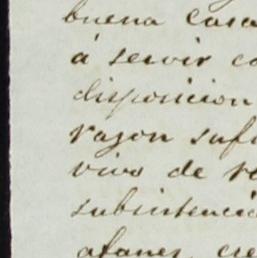 buena casa
á servir co
disposicion
razon sufi
vivo de re
subsistencia
afanes, cre